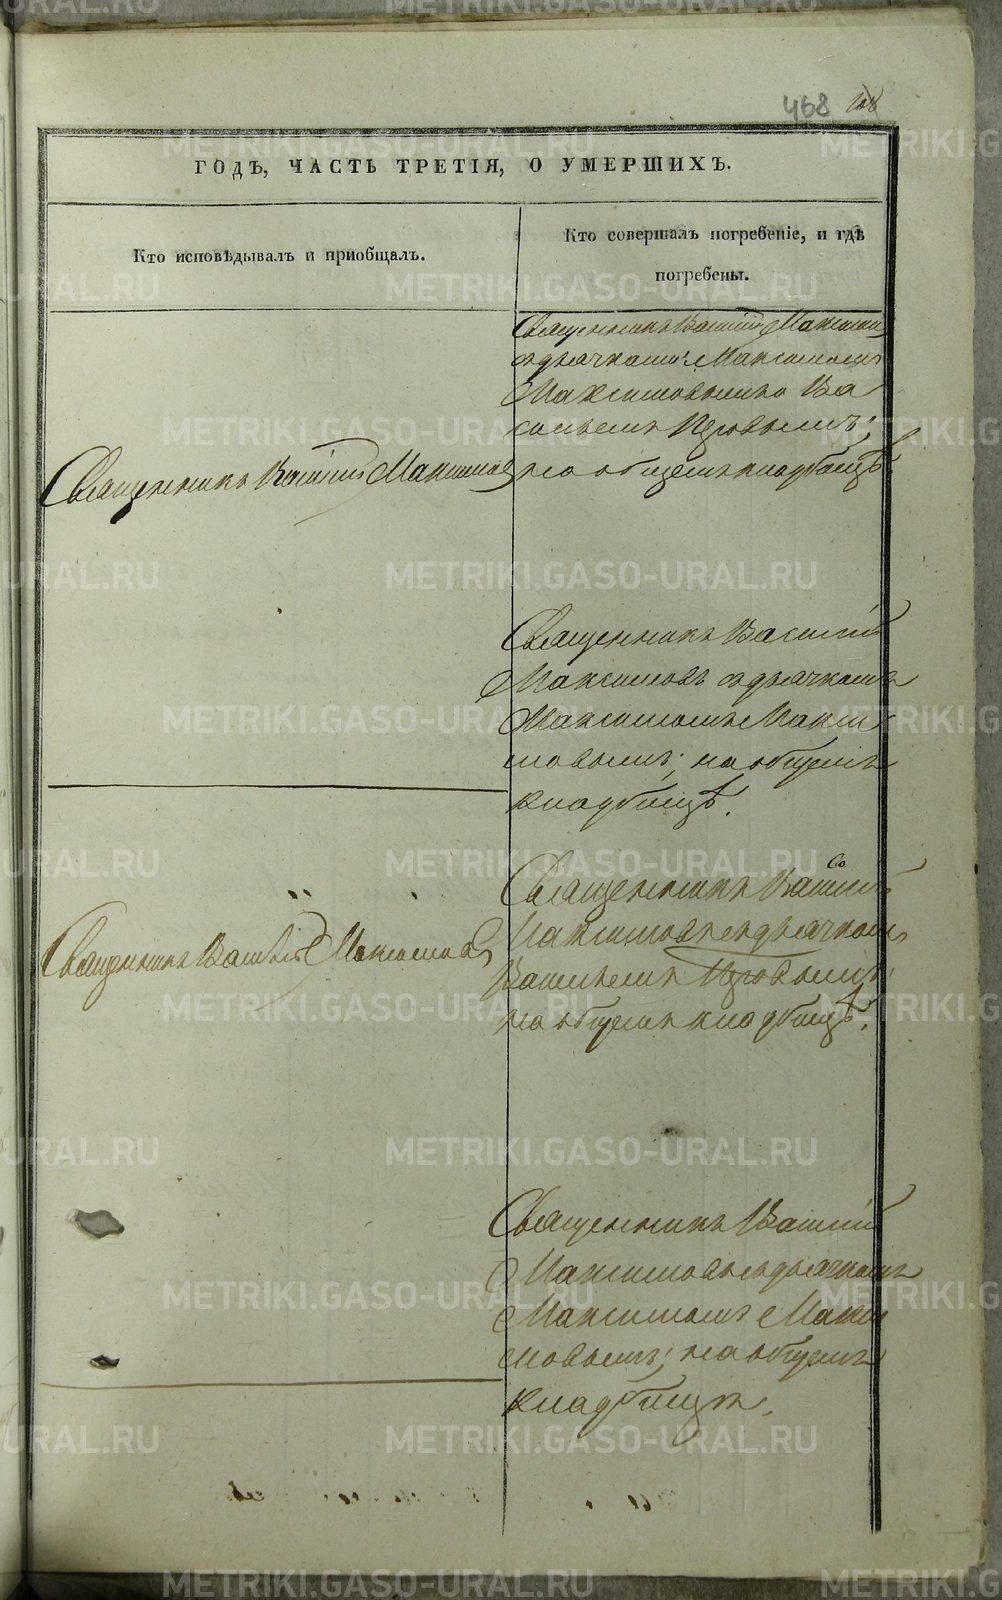 468 108
ГОДЪ, ЧАСТЬ ТРЕТІЯ, О УМЕРШИХЪ.
Кто исповѣдывалъ и приобщалъ.
Кто совершалъ погребеніе, и гдѣ
погребены.
Священникъ Василій Максимов
Священникъ Василій Максимо
съ дьячкомъ: Максимомъ
Максимовымъ и Ва
сильемъ
на общемъ кладбищѣ.
Священникъ Василій
Максимовъ съ дьячкомъ
Максимомъ Макси
мовымъ; на общемъ
кладбищѣ.
Священникъ Василій Максимовъ
Священникъ Василій
Максимовъ съ дьячкомъ
Васильемъ
на общемъ кладбищѣ.
Священникъ Василій
Максимовъ съ дьячкомъ
Максимомъ Макси
мовымъ; на общемъ
кладбищѣ.
METRIKI.GASO-URAL.RU